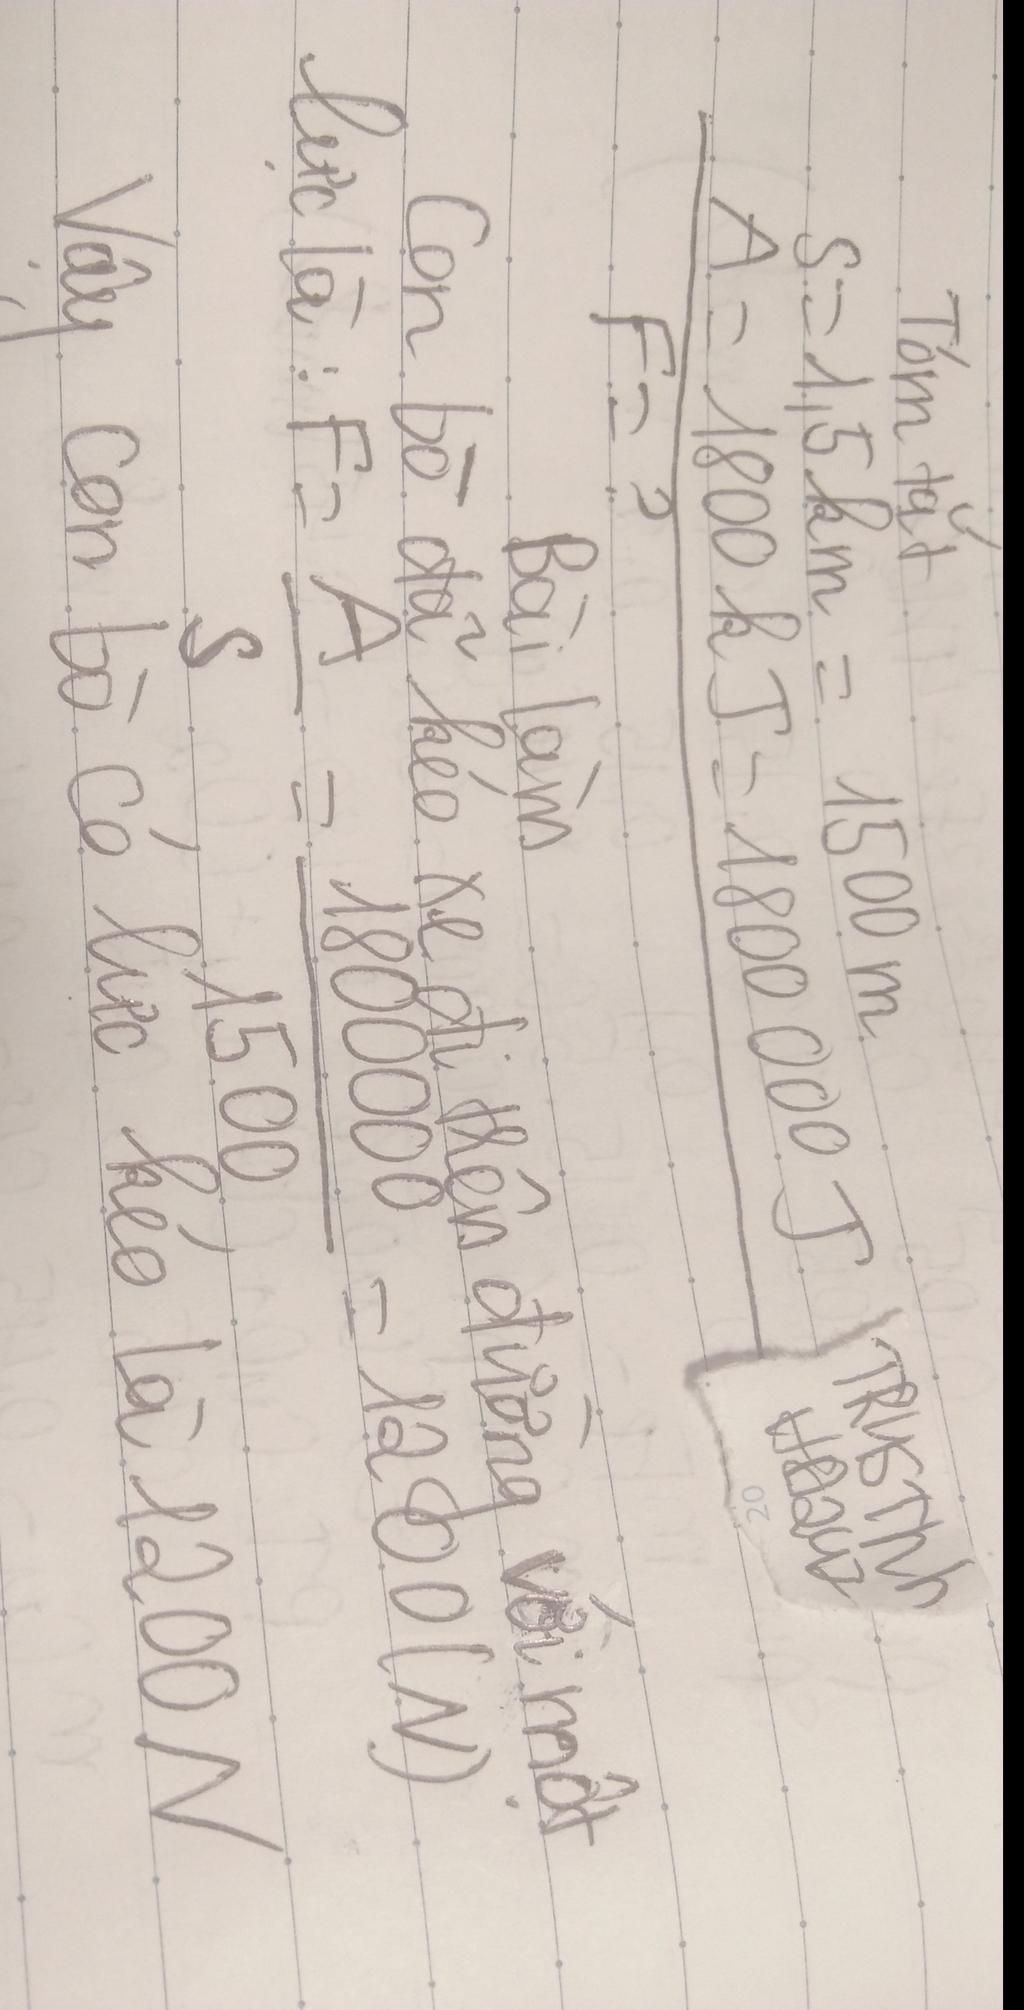 Tóm tắt
S = 1,5 km = 1500 m
A = 1800 kJ = 1800 000 J
F = ?
Bài làm
Con bò đã kéo xe đi trên đường với một
lực là: F = A/S = 1800000/1500 = 1200 (N)
Vậy con bò có lực kéo là 1200 N
20